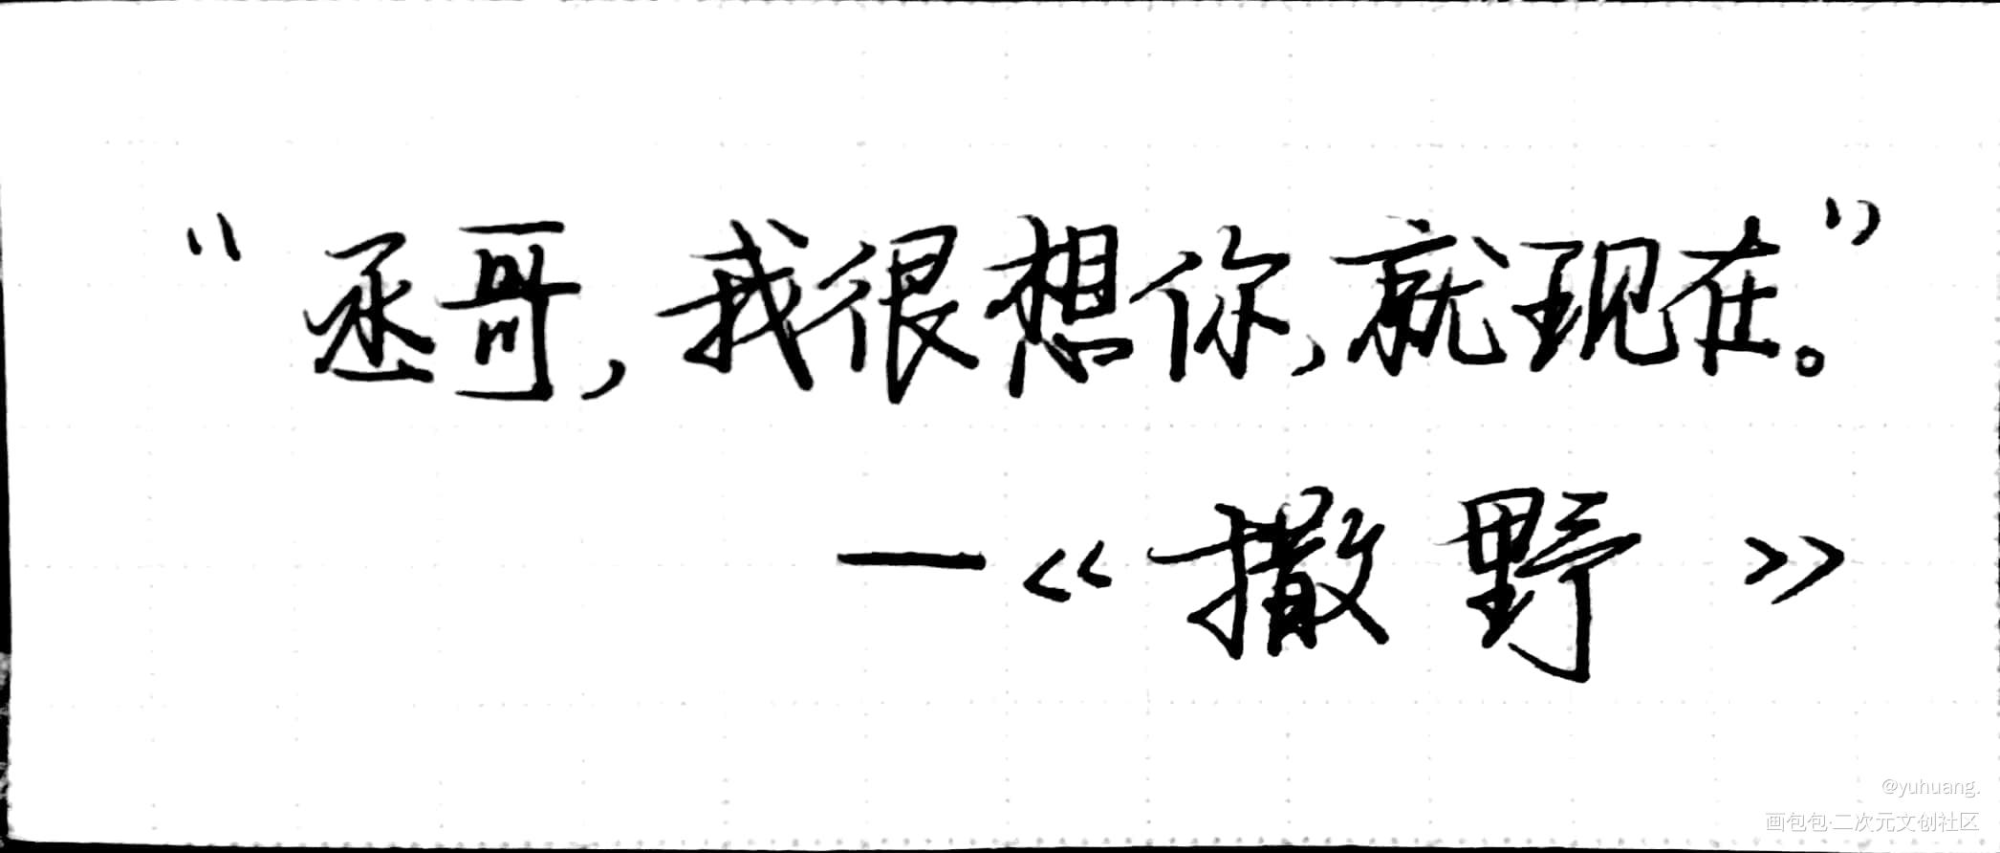 “丞哥，我很想你，就现在。”
—《撒野》
@yuhuang.
画包包·二次元文创社区